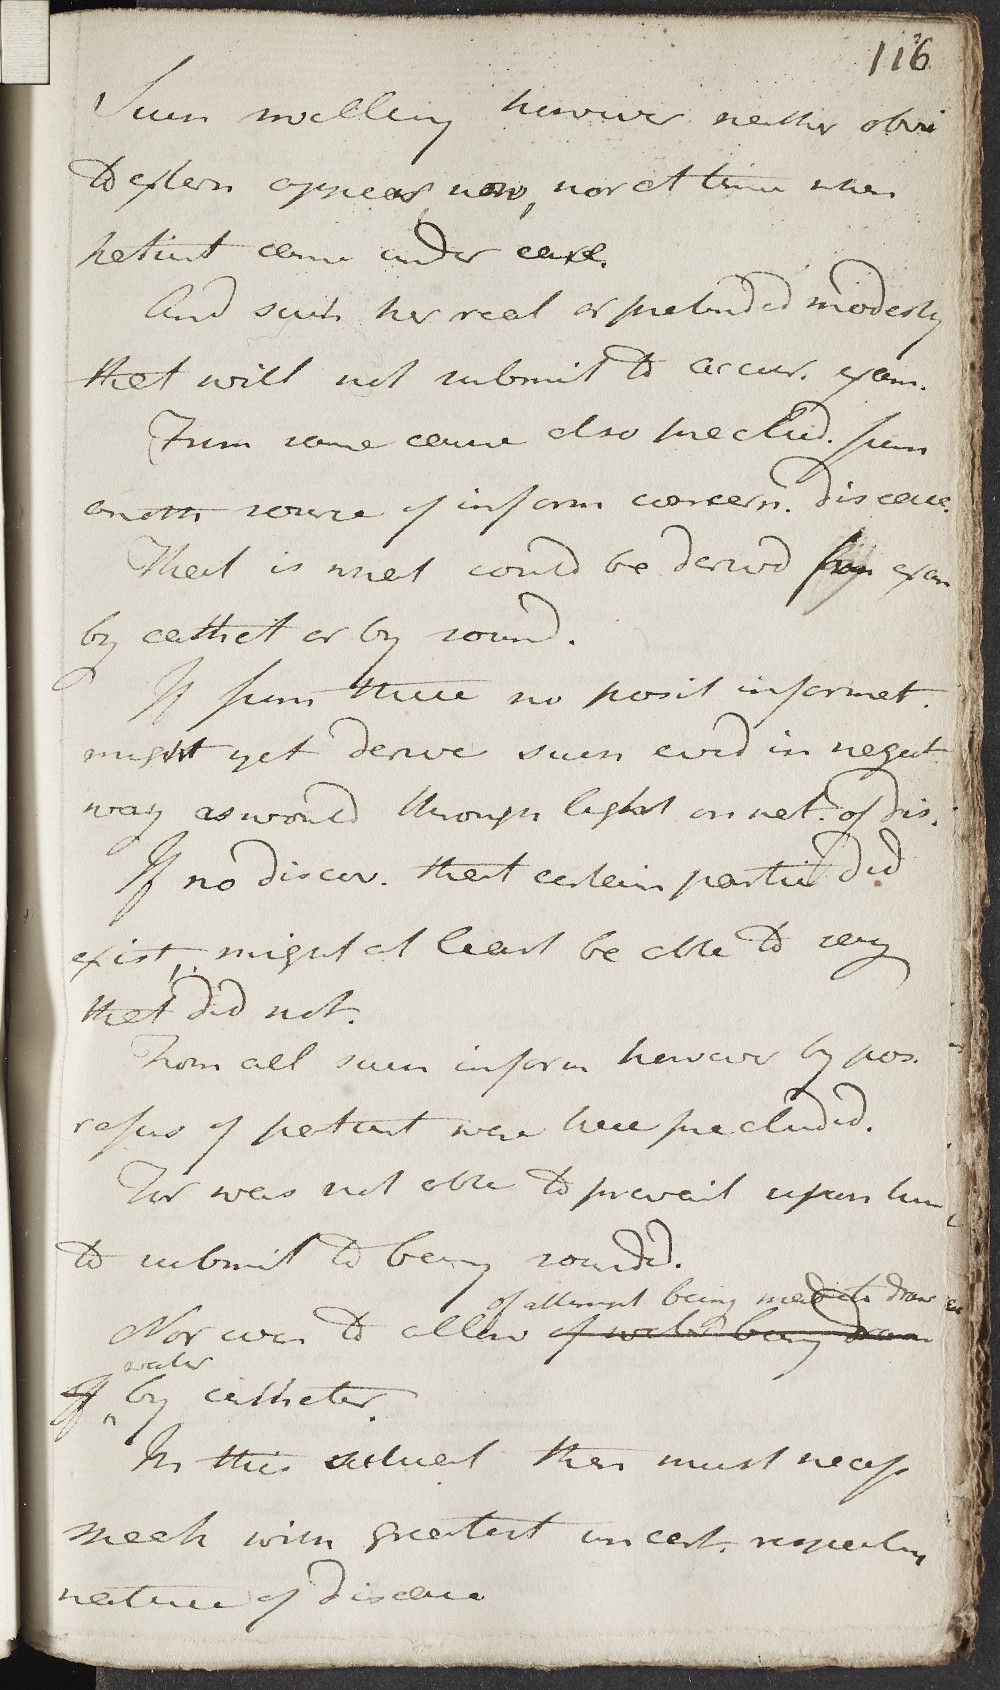 116
Such swelling however neither obvi
to extern appear now, nor at time when
patient came under care.
And such her real or pretended modesty
that will not submit to accur. exam.
From same cause also preclud. from
anoth source of inform concern. disease.
That is what could be derivd from exam
by cathet or by sound.
If from these no posit informat.
might yet derive such evid in negat
way as would through light on nat. of dis.
If no discov. that certain partic did
exist, might at least be able to say
that did not.
From all such inform however by pos.
refus of patient were here precluded.
For was not able to prevail upon her
to submit to being sounded.
of attempt being made to draw
Nor even to allow of water being drawn
water
off by catheter.
In this situat then must necess
speak with greatest uncert. respecting
nature of disease